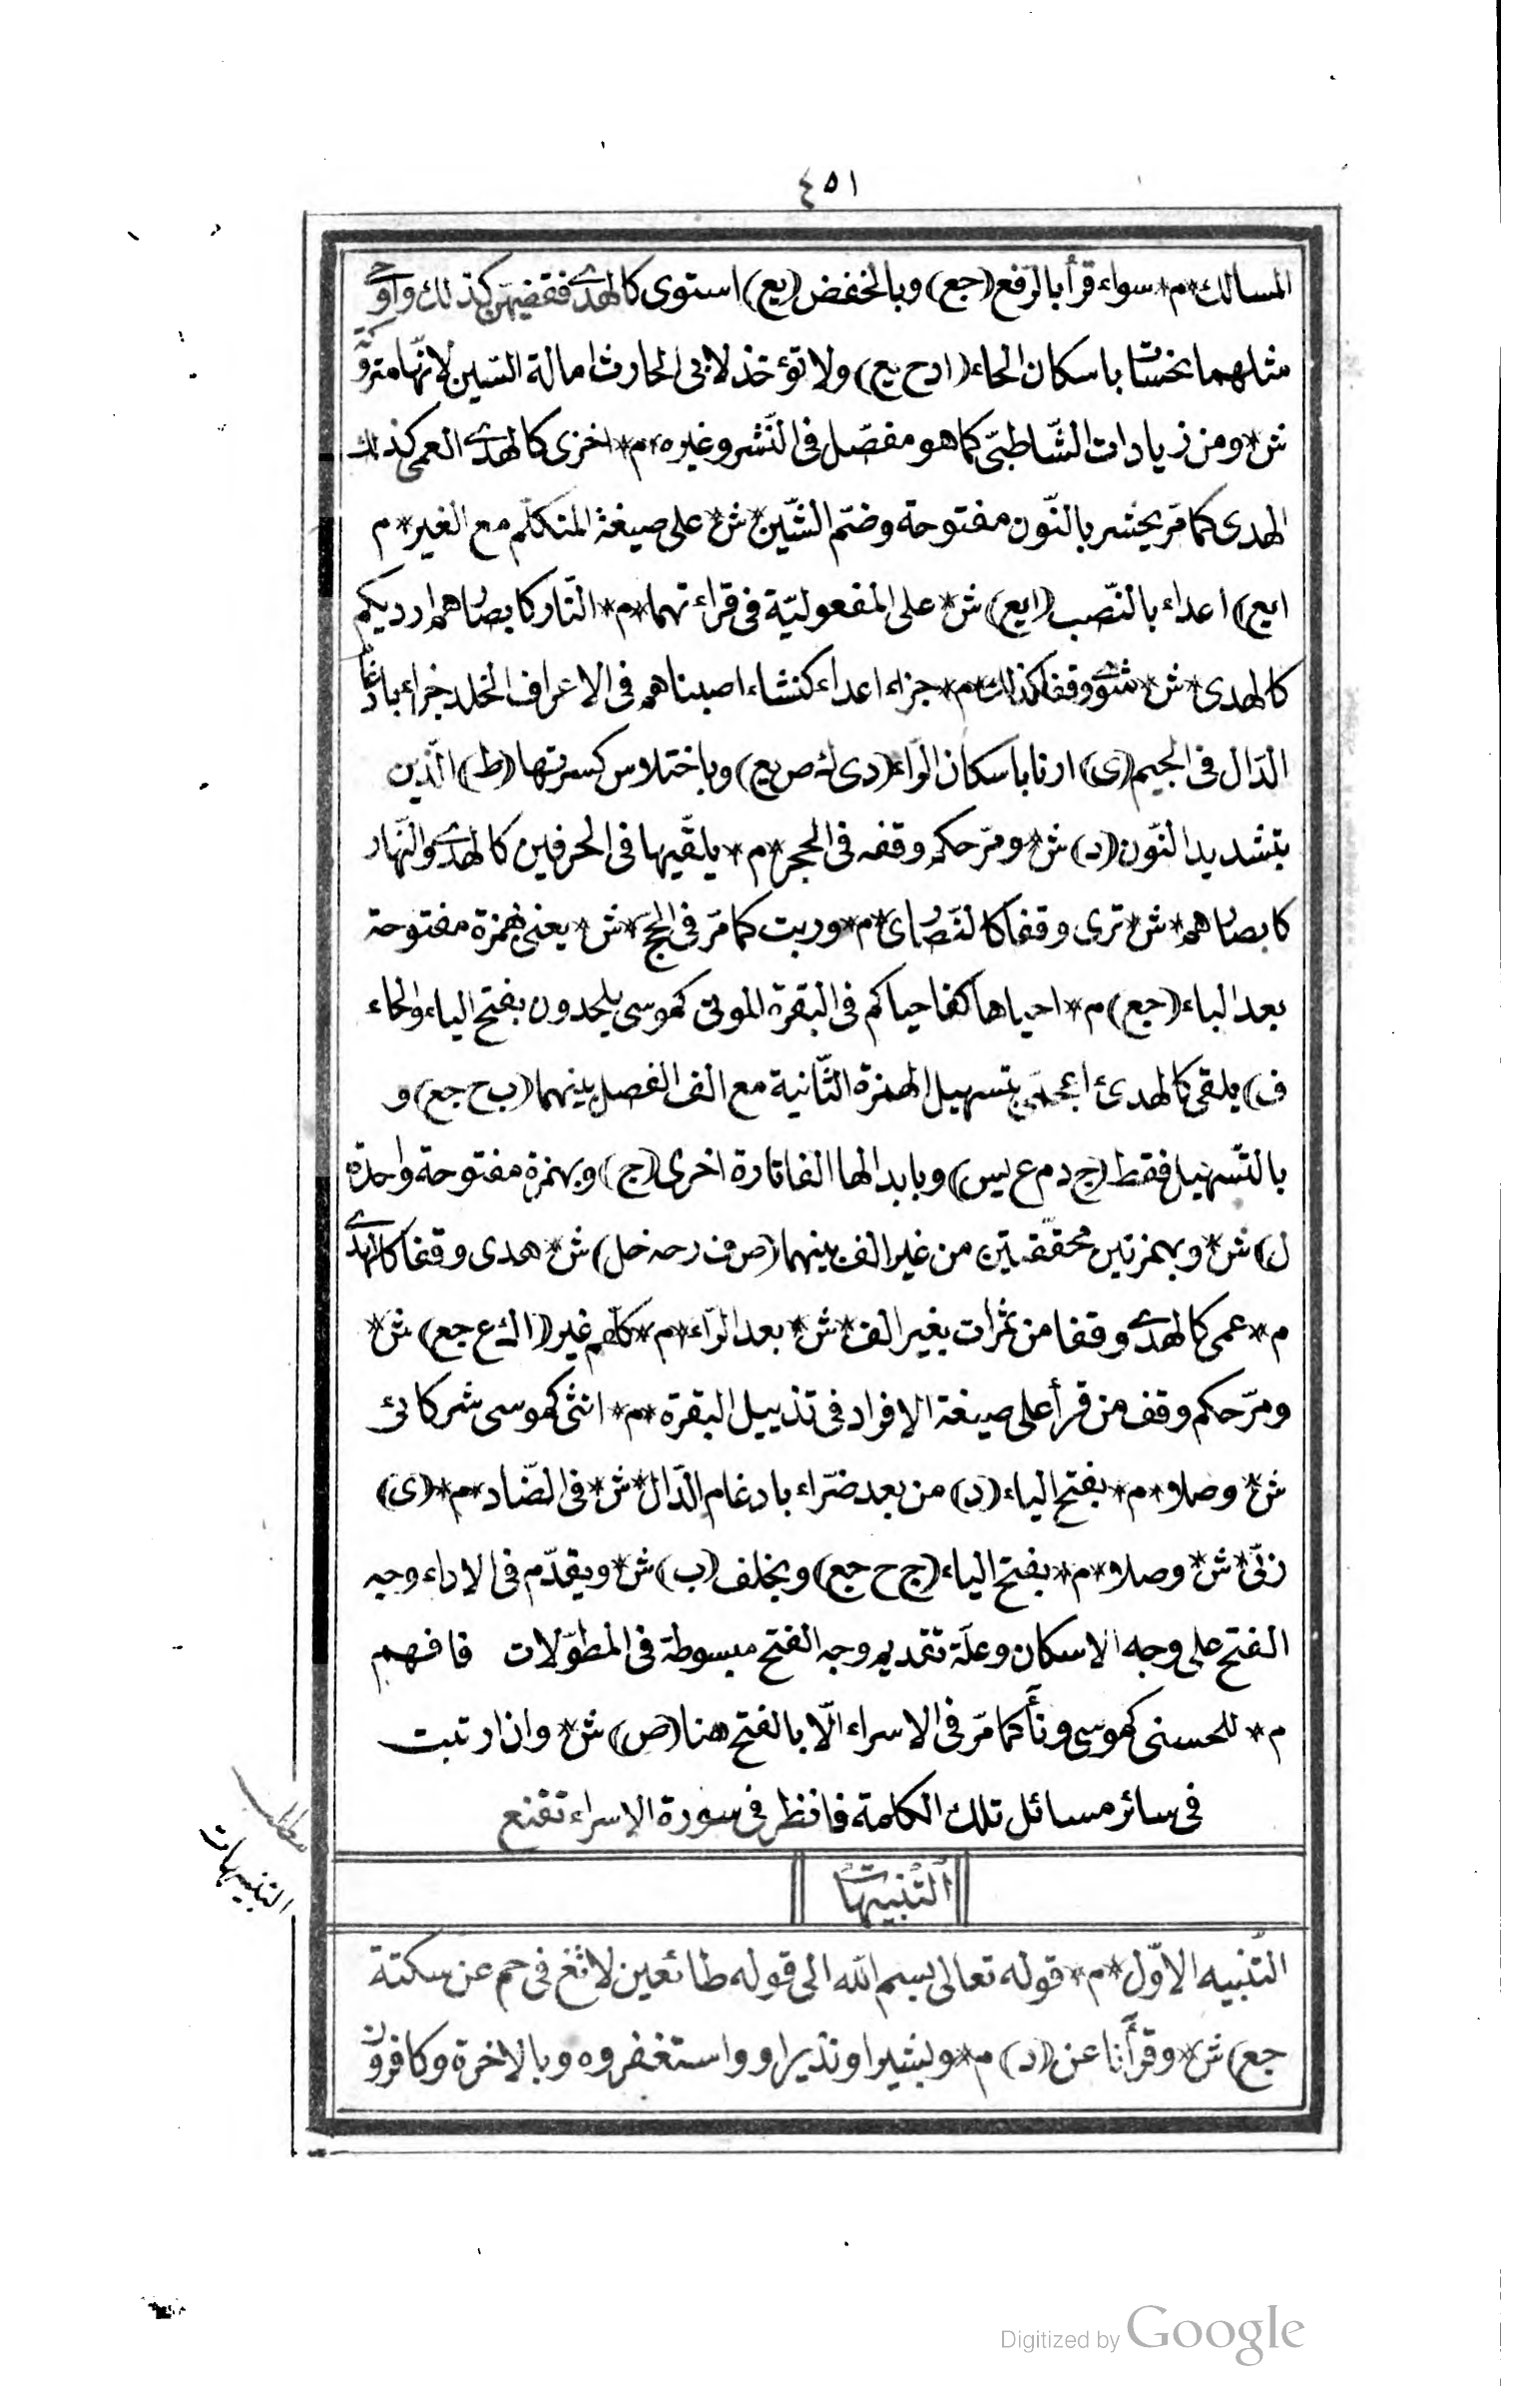 ٤٥١
المسالك *م* سواء قرأ بالرّفع (جع) وبالخفض (يع) استوى كالهدى فقضيهن كذلك واوحى
مثلهما نحسات باسكان الحاء (ادح يع) ولا تؤخذ لابى الحارث امالة السّين لانّها متروكة
ش* ومن زيادات الشّاطبىّ كما هو مفصّل فى النّشر وغيره *م* اخزى كالهدى العمى كذلك
الهدى كما مرّ يحشر بالنّون مفتوحة وضمّ الشّين *ش* على صيغة المتكلّم مع الغير *م
ايع) اعداء بالنّصب (ايع) ش* على المفعوليّة فى قراءتهما *م* النّار كابصارهم ارديكم
كالهدى *ش* مثوى وقفا كذلك *م* جزاء اعداء كنشاء اصبناهم فى الاعراف الخلد جزاء بادغام
الدّال فى الجيم (ى) ارنا باسكان الرّاء (دى ك ص يع) وباختلاس كسرتها (ط) الّذين
بتشديد النّون (د) ش* ومرّ حكم وقفه فى الحجر *م* يلقّيها فى الحرفين كالهدى والنّهار
كابصارهم *ش* ترى وقفا كالنّصارى *م* وربت كما مرّ فى الحجّ *ش* يعنى بهمزة مفتوحة
بعد الباء (جع) م* احياها كفاحياكم فى البقرة الموتى كموسى يلحدون بفتح الياء والحاء
ف) يلقى كالهدى ءاعجمىّ بتسهيل الهمزة الثّانية مع الف الفصل بينهما (ب ح جع) و
بالتّسهيل فقط (ج د م ع يس) وبابدالها الفا تارة اخرى (ج) وبهمزة مفتوحة واحدة
ل) ش* وبهمزتين محقّقتين من غير الف بينهما (ص ف ر حه خل) ش* هدى وقفا كالهدى
م* عمى كالهدى وقفا من ثمرات بغير الف *ش* بعد الرّاء *م* كلّهم غير (ا ك ع جع) ش*
ومرّ حكم وقف من قرأ على صيغة الافراد فى تذييل البقرة *م* انثى كموسى شركائى
ش* وصلا *م* بفتح الياء (د) من بعد ضرّاء بادغام الدّال *ش* فى الضّاد *م* (ى)
ربّى *ش* وصلا *م* بفتح الياء (ج ح جع) وبخلف (ب) ش* ويقدّم فى الاداء وجه
الفتح على وجه الاسكان وعلّة تقديم وجه الفتح مبسوطة فى المطوّلات فافهم
م* للحسنى كموسى ونأى كما مرّ فى الاسراء الّا بالفتح هنا (ص) ش* وان ارتبت
فى سائر مسائل تلك الكلمة فانظر فى سورة الاسراء تقنع
مطلب
التنبيهات
التّنبيهات
التّنبيه الاوّل *م* قوله تعالى بسم الله الى قوله طائعين لا تغ فى حم عن سكتة
جع) ش* وقرأنا عن (د) م* وبشيرا ونذيرا و واستغفروه وبالاخرة وكافرون
Digitized by Google